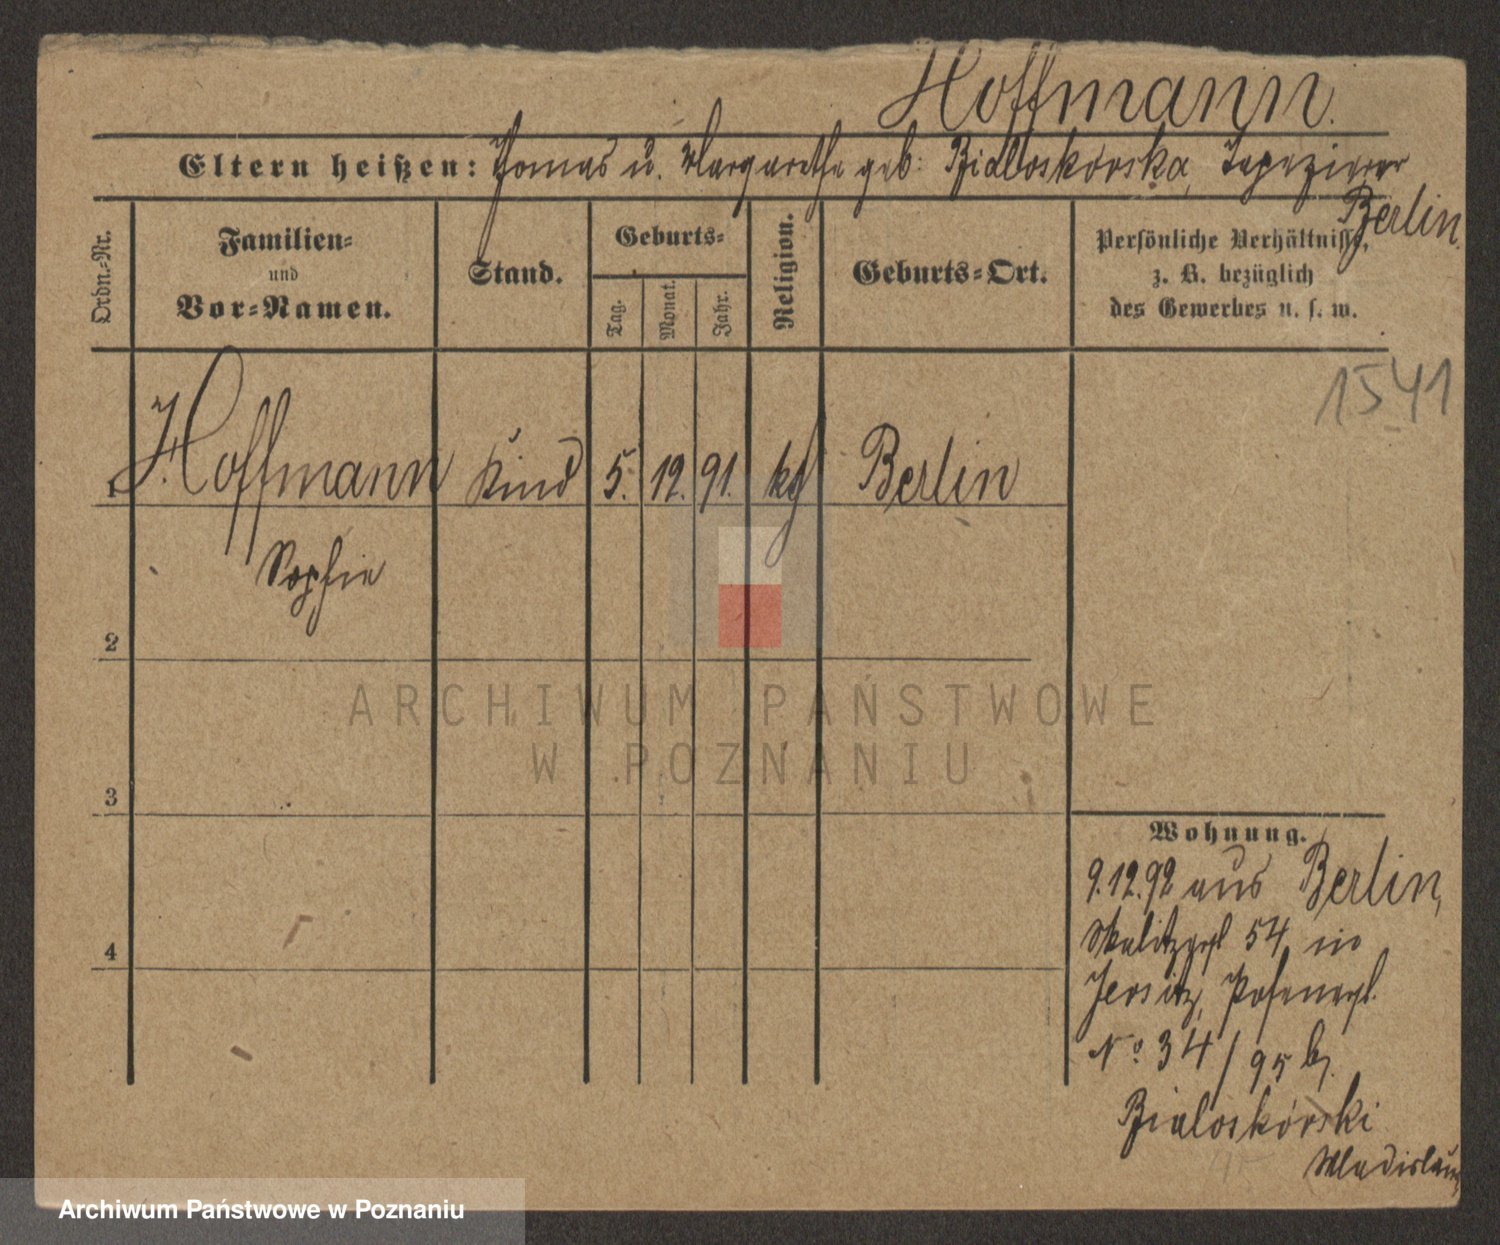 Hoffmann.
Eltern heißen: Thomas u. Margarethe geb. Bialoskórska, Tapezierer
Berlin.
Ordn.-Nr.
Familien-
und
Vor-Namen.
Stand.
Geburts-
Tag.
Monat.
Jahr.
Religion.
Geburts-Ort.
Persönliche Verhältnisse,
z. B. bezüglich
des Gewerbes u. s. w.
1541
1 Hoffmann Kind 5. 12. 91. kg Berlin
Sophie
2
3
4
Wohnung.
9.12.92 aus Berlin,
54 in
Jersitz, Posenerst.
No 34/95 b.
Bialoskórski
Wladislaus
ARCHIWUM PAŃSTWOWE
W POZNANIU
Archiwum Państwowe w Poznaniu